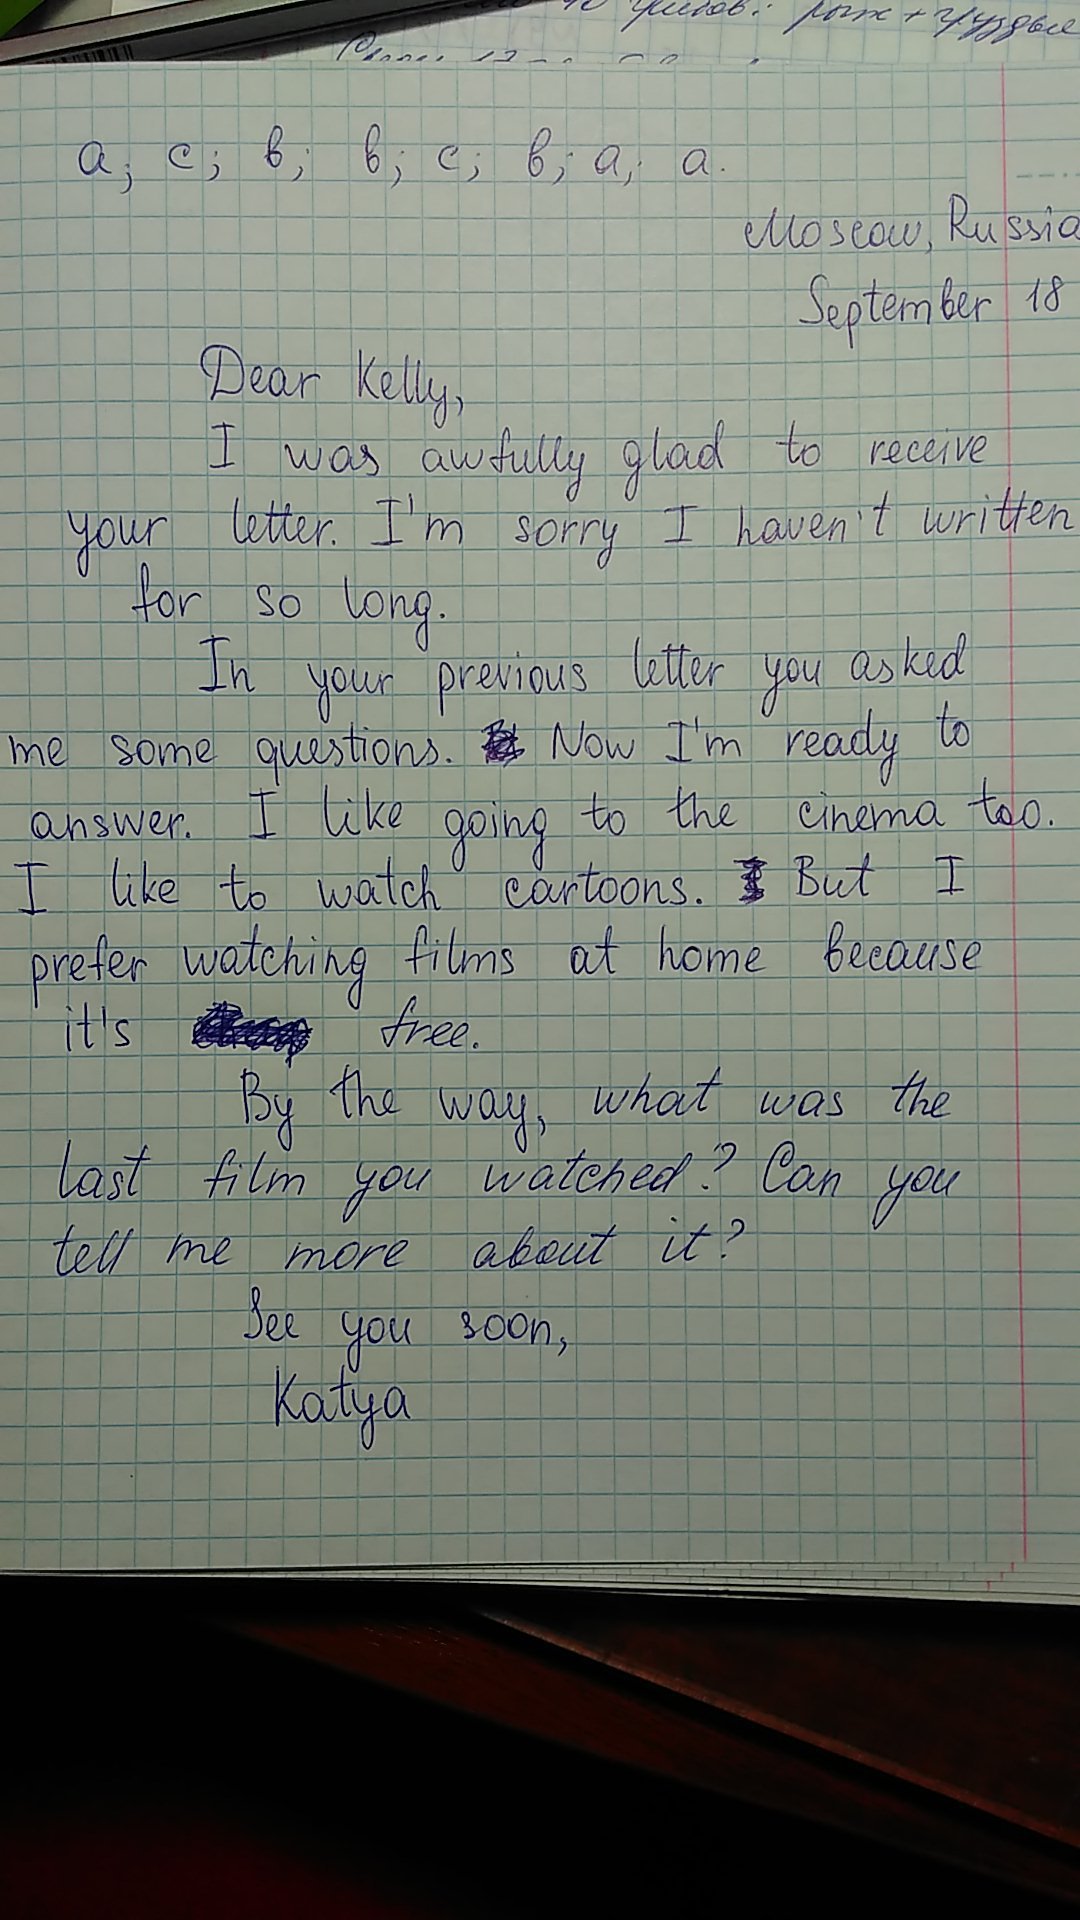 грибов: рыж + грузди
a; c; b; b; c; b; a; a.
Moscow, Russia
September 18
Dear Kelly,
I was awfully glad to receive
your letter. I'm sorry I haven't written
for so long.
In your previous letter you asked
me some questions. Now I'm ready to
answer. I like going to the cinema too.
I like to watch cartoons. But I
prefer watching films at home because
it's free.
By the way, what was the
last film you watched? Can you
tell me more about it?
See you soon,
Katya